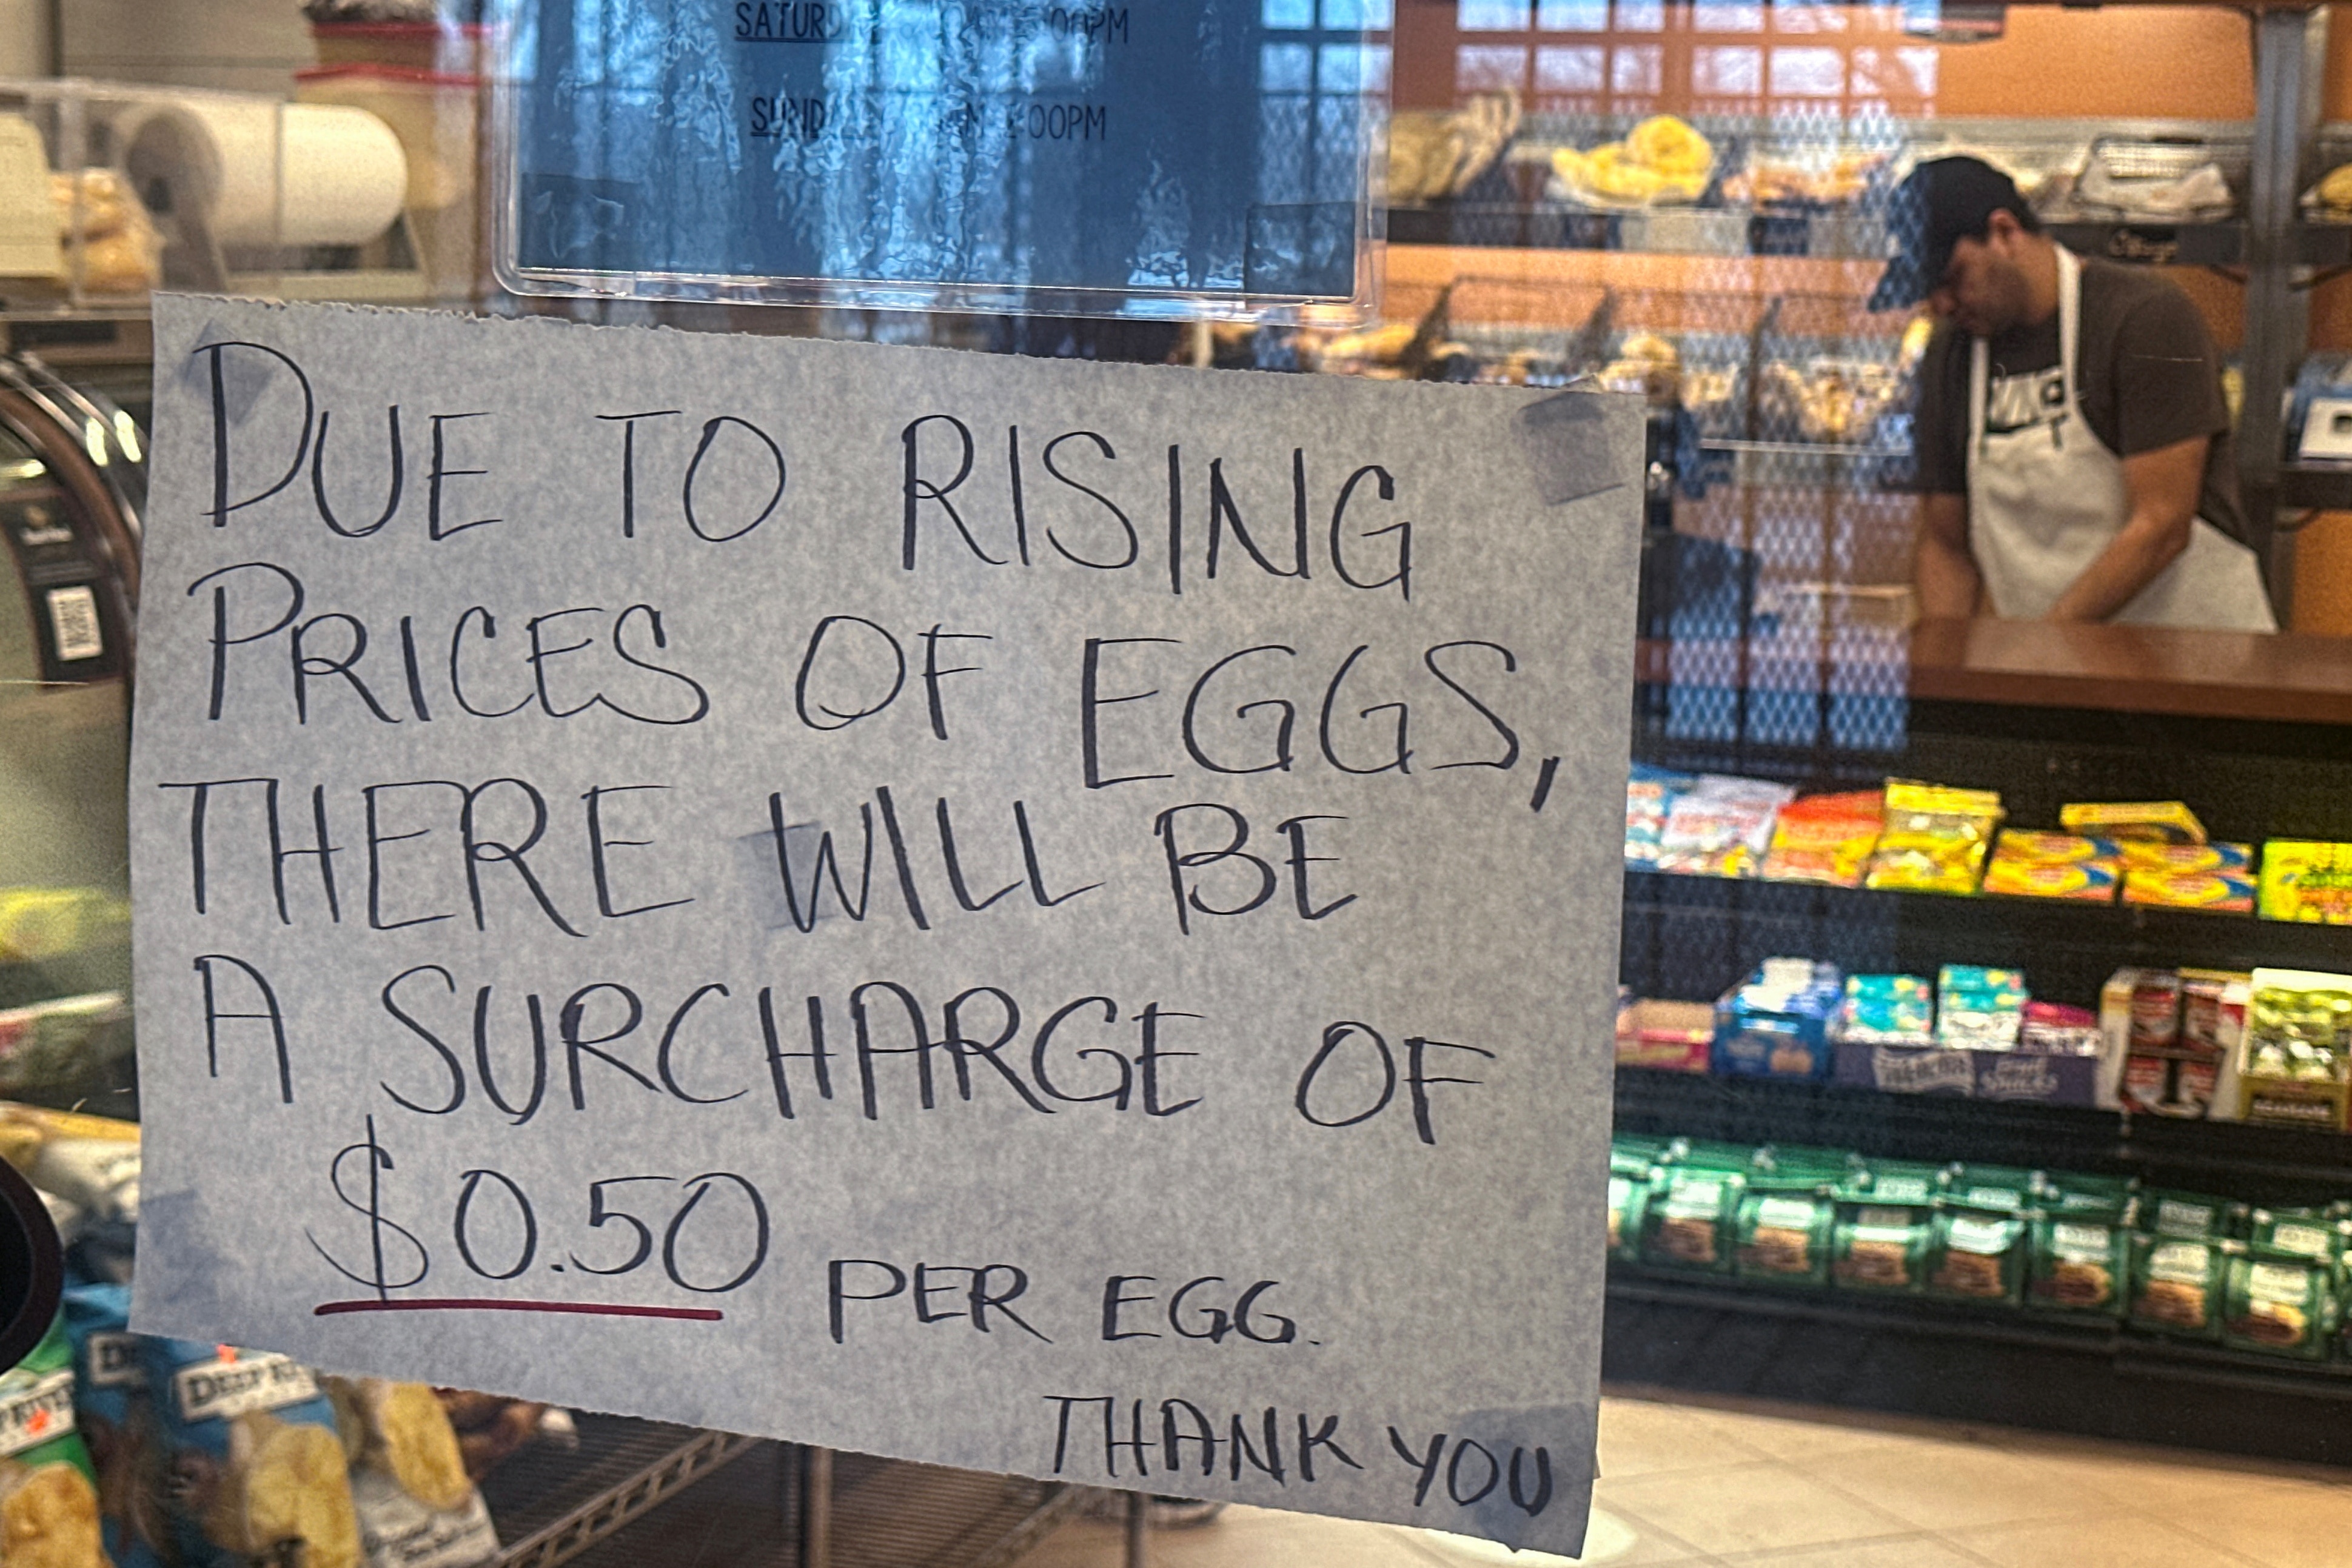 SATURDAY
00PM
SUNDAY
00PM
DUE TO RISING
PRICES OF EGGS,
THERE WILL BE
A SURCHARGE OF
$0.50 PER EGG.
THANK YOU
DEEP RIVER